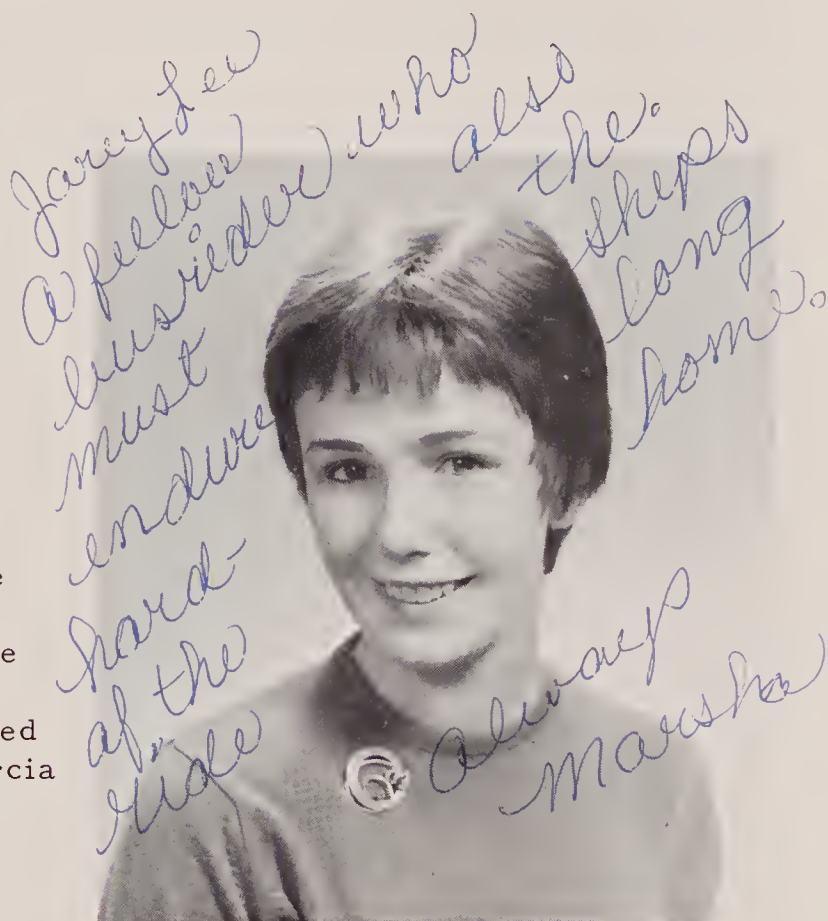 Lee
A fellow
busrider who also
must
endure the.
hard-
ships
of the
long
ride
home.
always
Marsha
e
e
ed
rcia